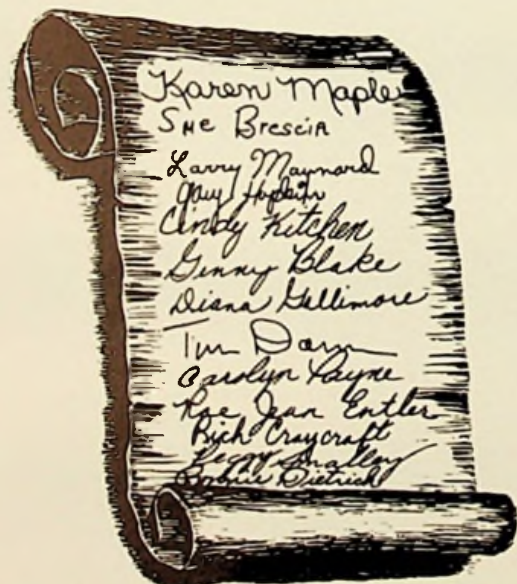 Karen Maple
Sue Brescia
Larry Maynard
Gary Hopkin
Cindy Kitchen
Ginny Blake
Diana Gullimore
Tim
Carolyn Payne
Rae Jean Entler
Rich Craycraft
Peggy Smalley
Bonnie Dietrich